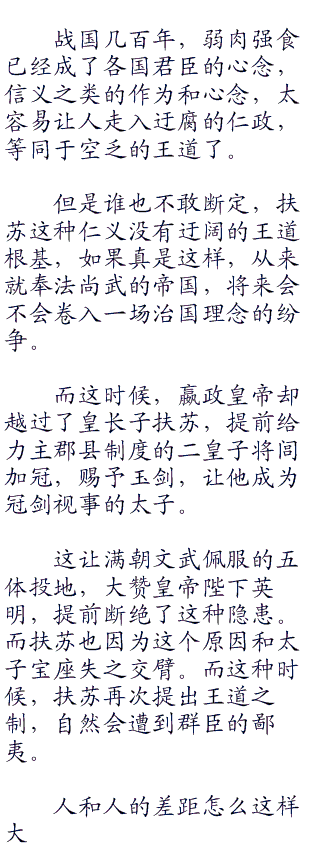 战国几百年，弱肉强食
已经成了各国君臣的心念，
信义之类的作为和心念，太
容易让人走入迂腐的仁政，
等同于空乏的王道了。
但是谁也不敢断定，扶
苏这种仁义没有迂阔的王道
根基，如果真是这样，从来
就奉法尚武的帝国，将来会
不会卷入一场治国理念的纷
争。
而这时候，嬴政皇帝却
越过了皇长子扶苏，提前给
力主郡县制度的二皇子将闾
加冠，赐予玉剑，让他成为
冠剑视事的太子。
这让满朝文武佩服的五
体投地，大赞皇帝陛下英
明，提前断绝了这种隐患。
而扶苏也因为这个原因和太
子宝座失之交臂。而这种时
候，扶苏再次提出王道之
制，自然会遭到群臣的鄙
夷。
人和人的差距怎么这样
大